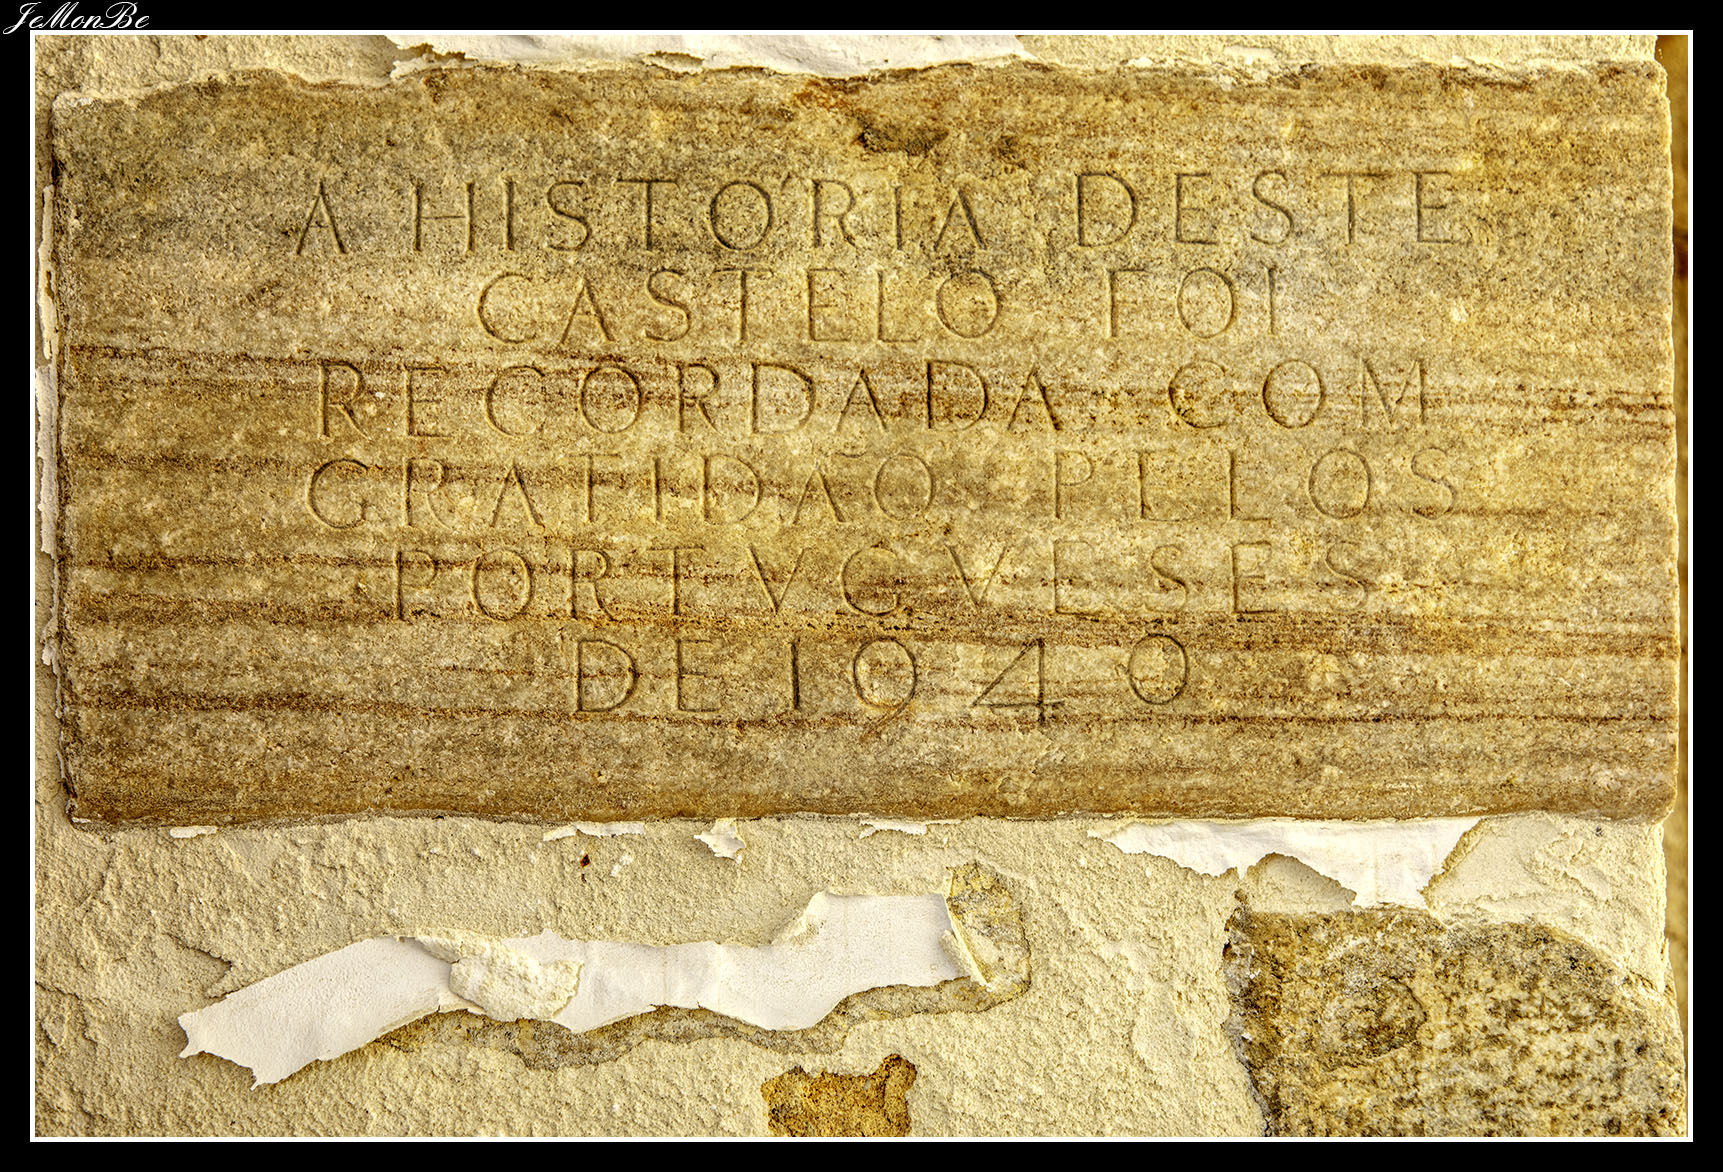 JeMonBe
A HISTÓRIA DESTE
CASTELO FOI
RECORDADA COM
GRATIDÃO PELOS
PORTVGVESES
DE 1940